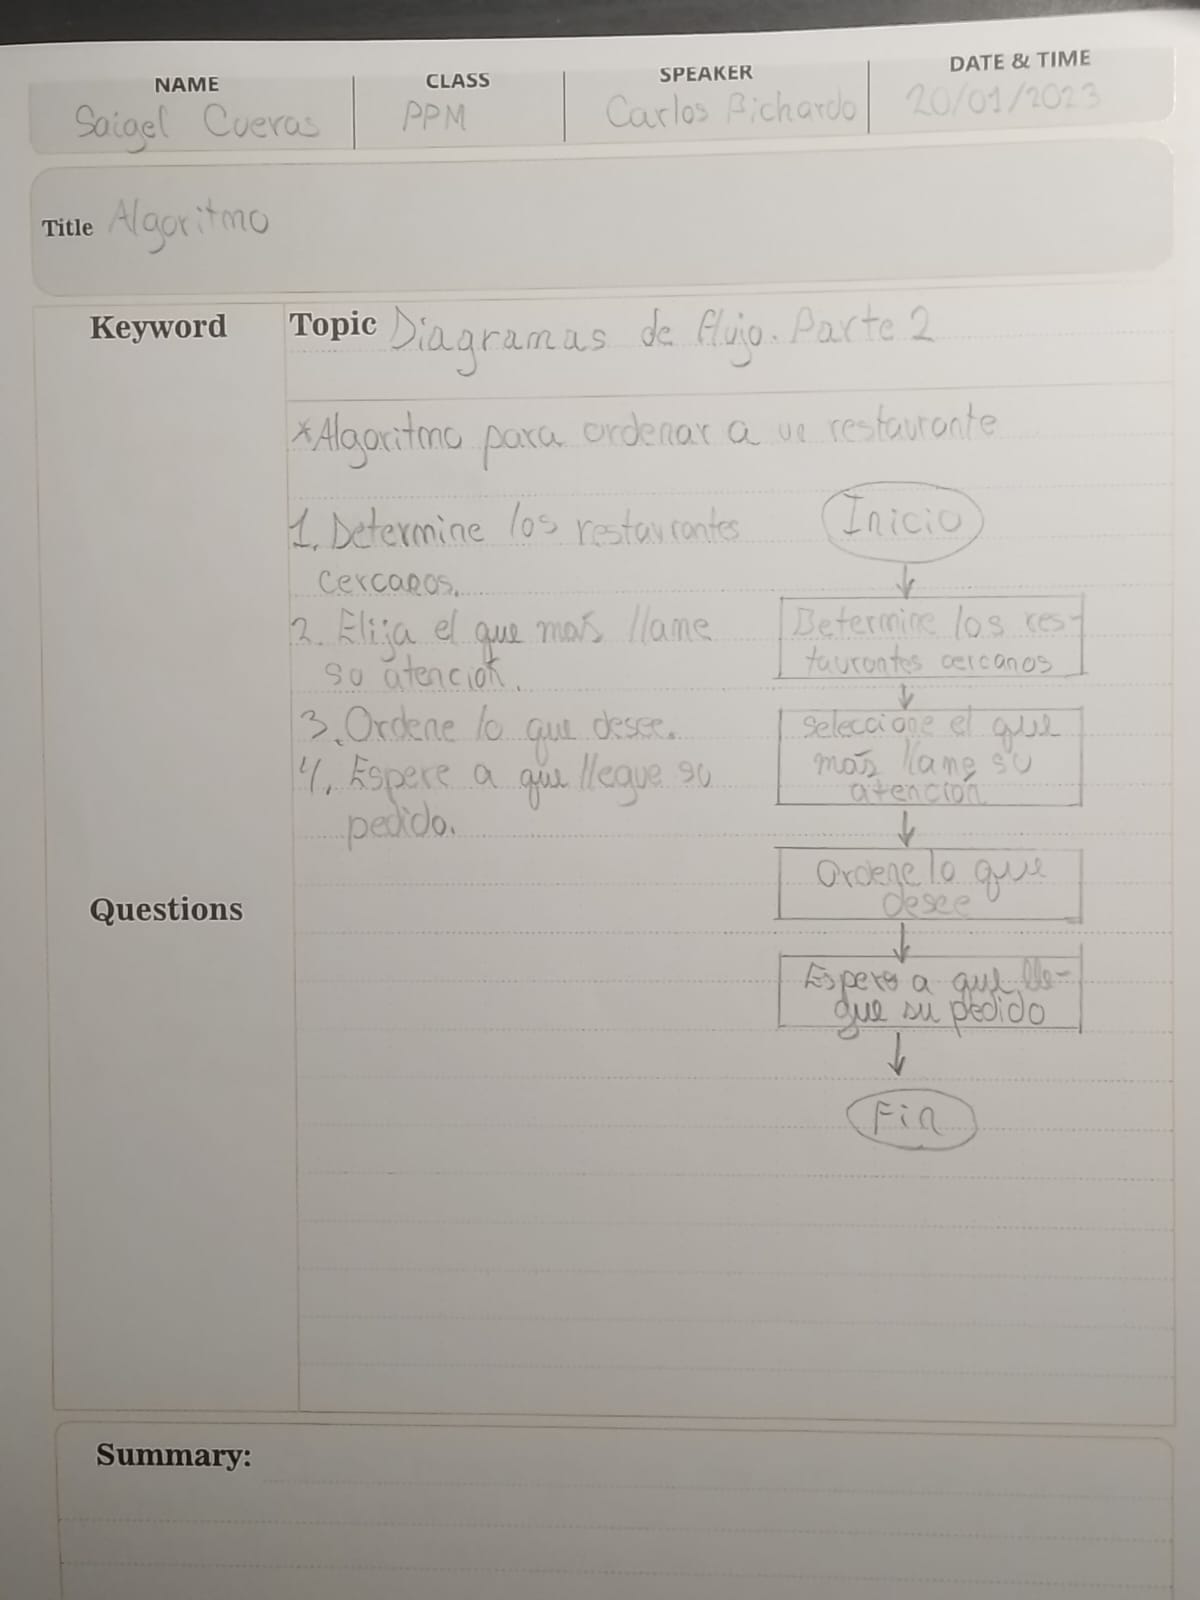 NAME
CLASS
SPEAKER
DATE & TIME
Saigel Cuevas
PPM
Carlos Pichardo
20/01/2023
Title Algoritmo
Keyword
Topic Diagramas de flujo. Parte 2
*Algoritmo para ordenar a un restaurante
1. Determine los restaurantes
cercanos.
2. Elija el que más llame
su atención.
3. Ordene lo que desee.
4. Espere a que llegue su
pedido.
Inicio
Determine los res-
taurantes cercanos
Seleccione el que
más llame su
atención
Ordene lo que
desee
Espere a que lle-
gue su pedido
Fin
Questions
Summary: